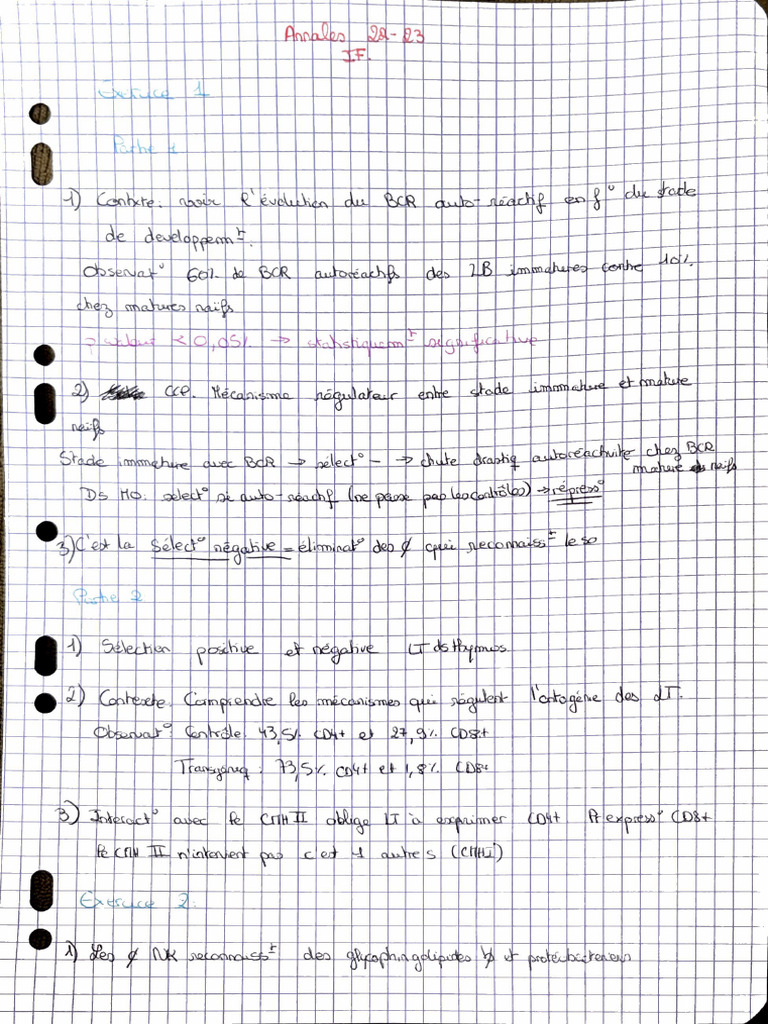 Annales 22-23
IF.
Exercice 1
Partie 1
1) Contexte: voir l'évolution du BCR auto-réactif en f° du stade
de developpemt.
Observat° 60% de BCR autoréactifs des LB immatures contre 10%
chez matures naïfs
p valeur < 0,05% → statistiquemt significative
2) CCP. Mécanisme régulateur entre stade immature et mature
naïfs
Stade immature avec BCR → sélect° - → chute drastiq autoréactivité chez BCR
mature naïfs
Ds MO: select° si auto-réactif (ne passe pas les contrôles) → répress°
3) C'est la sélect° négative = éliminat° des ȼ qui reconnaisst le so
Partie 2
1) Sélection positive et négative LT ds thymus
2) Contexte: Comprendre les mécanismes qui régulent l'ontogénie des LT.
Observat°: Contrôle: 43,5% CD4+ et 27,9% CD8+
Transgéniq: 73,5% CD4+ et 1,8% CD8+
3) Interact° avec le CMH II oblige LT à exprimer CD4+ Pr express° CD8+
le CMH II n'intervient pas c'est 1 autres (CMHI)
Exercice 2.
1) Les ȼ NK reconnaisst des glycosphingolipides et protéobactériens